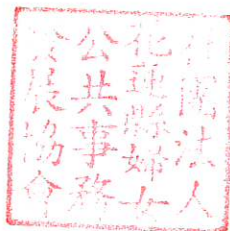 社團法人
花蓮縣婦女
公共事務
發展協會